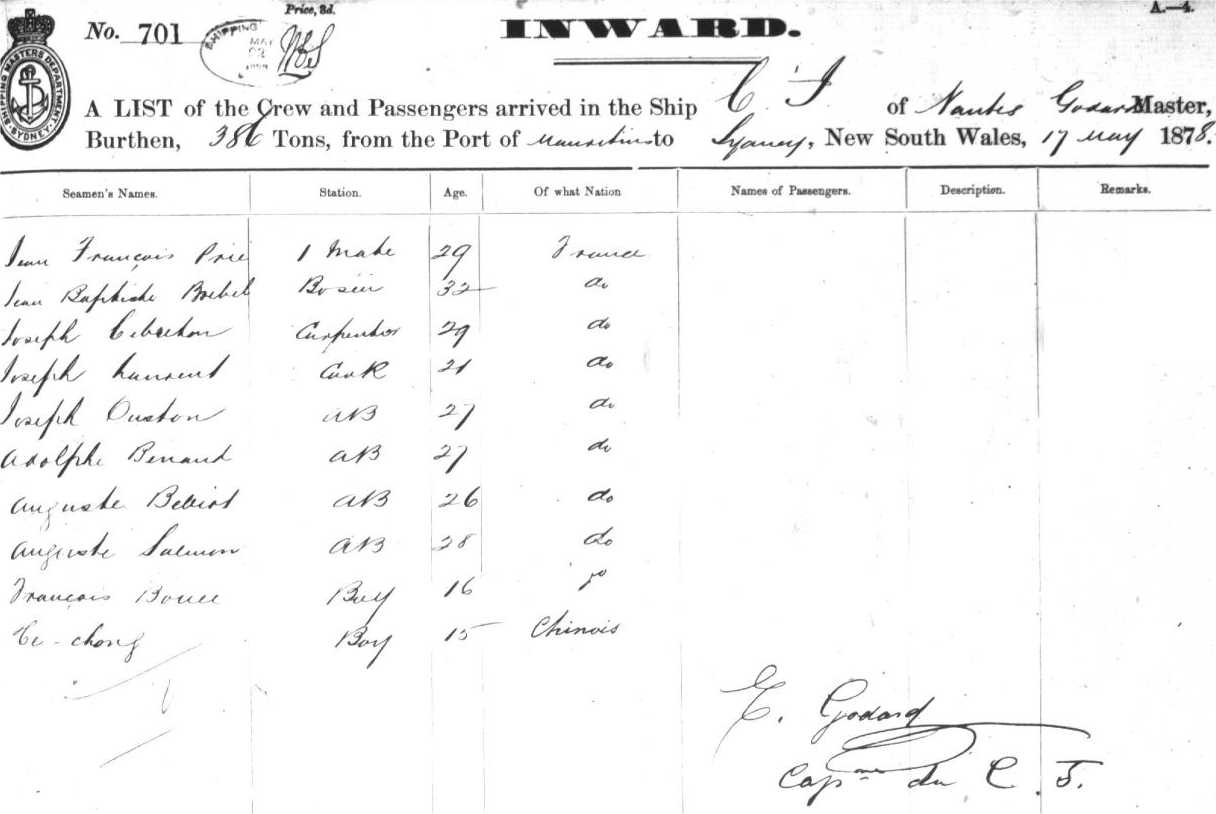 Price, 3d.
A.—4.
No. 701
INWARD.
SHIPPING MASTERS DEPARTMENT SYDNEY
SHIPPING
MAY
A LIST of the Crew and Passengers arrived in the Ship C J of Nantes Godard Master,
Burthen, 386 Tons, from the Port of Mauritius to Sydney, New South Wales, 17 May 1878.
Seamen's Names. Station. Age. Of what Nation Names of Passengers. Description. Remarks.
Jean François Prie 1 Mate 29 France
Jean Baptiste 32 do
Joseph Carpenter 29 do
Joseph Laurent Cook 21 do
Joseph Ouston AB 27 do
Adolphe Benaud AB 27 do
Auguste Belliot AB 26 do
Auguste Salmon AB 28 do
François Boy 16 do
chong Boy 15 Chinois
E. Godard
Capne du C. J.